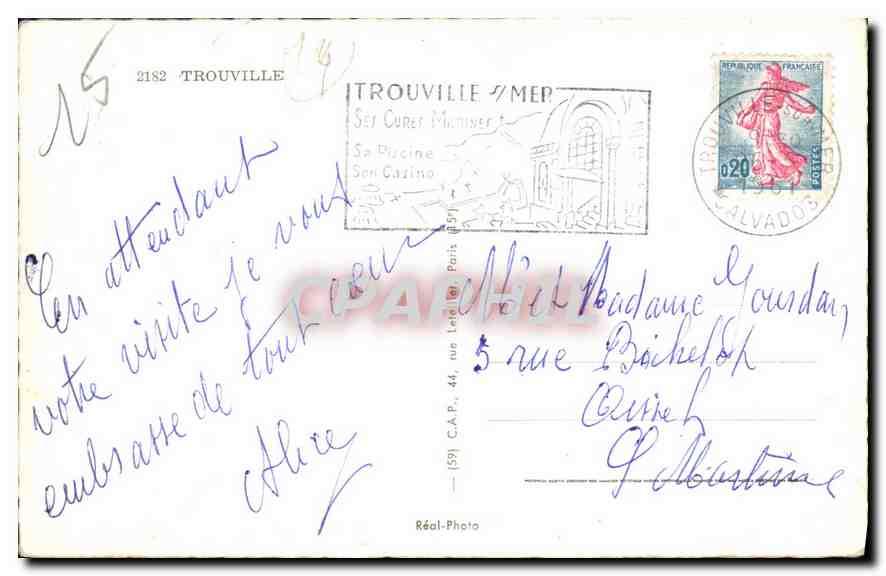 15
2182 TROUVILLE
TROUVILLE S/ MER
SES CURES MARINES
Sa Piscine
Son Casino
REPUBLIQUE FRANÇAISE
0,20
POSTES
TROUVILLE SUR MER
1961
CALVADOS
En attendant
votre visite je vous
embrasse de tout cœur
Alice
CPAPHIL
— (59) C.A.P., 44, rue Letellier, Paris (15e)
Mr et Madame Jourdan,
5 rue
Oissel
S Maritime
Réal-Photo